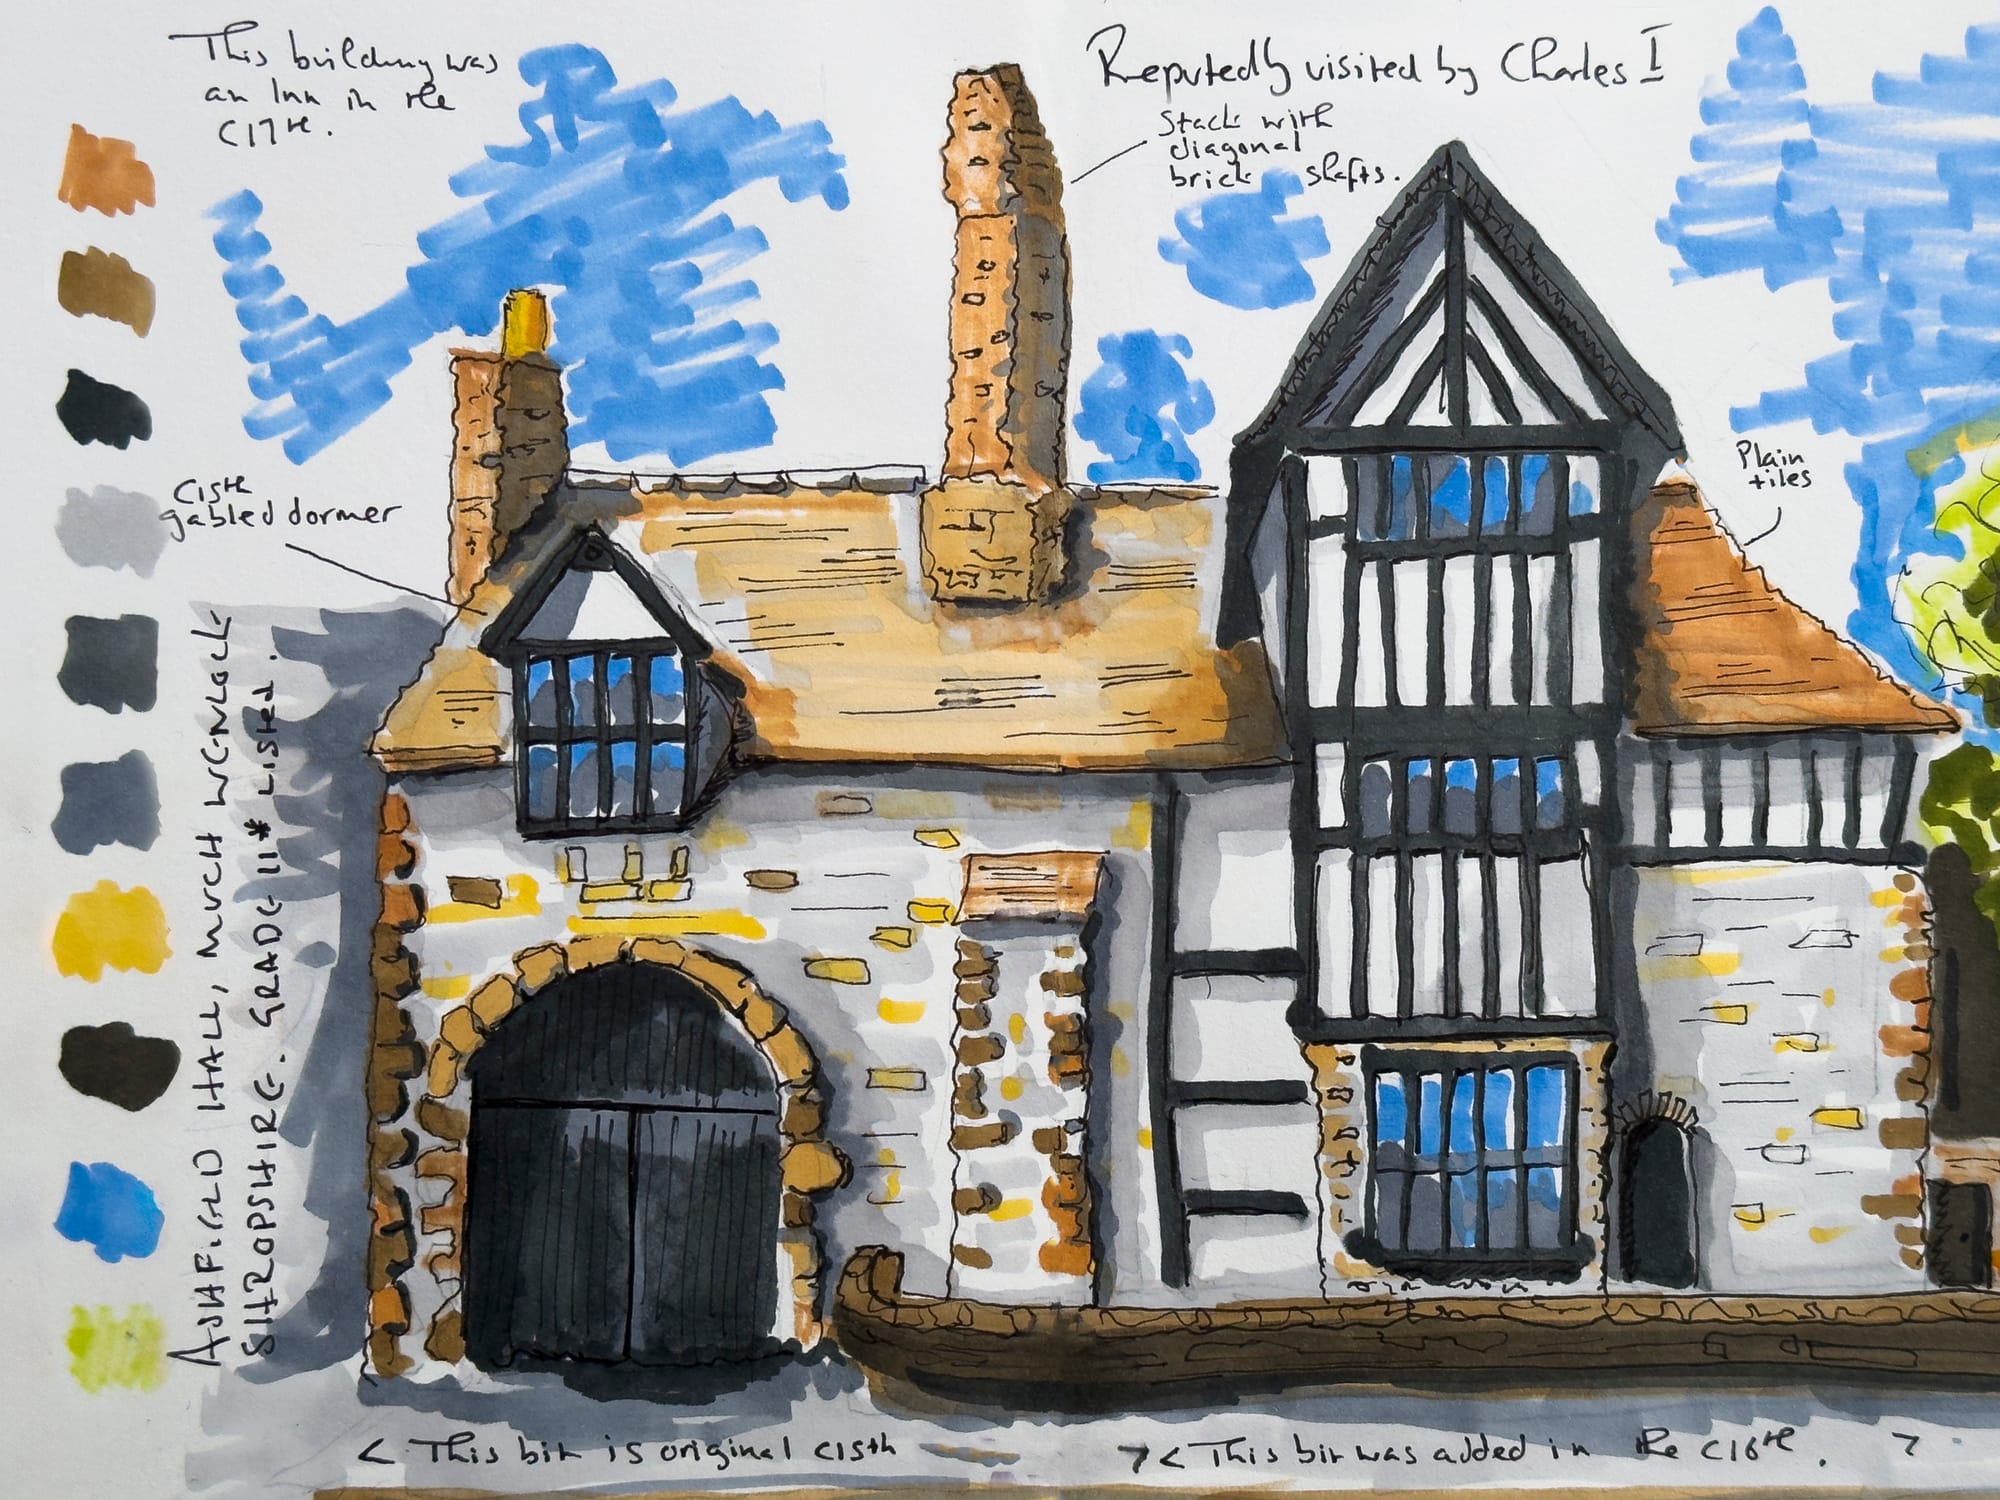 This building was
an Inn in the
C17th.
Reputedly visited by Charles I
Stack with
diagonal
brick shafts.
Plain
tiles
C15th
gabled dormer
ASHFIELD HALL, MUCH WENLOCK
SHROPSHIRE. GRADE II* LISTED.
< This bit is original C15th
> < This bit was added in the C16th. >